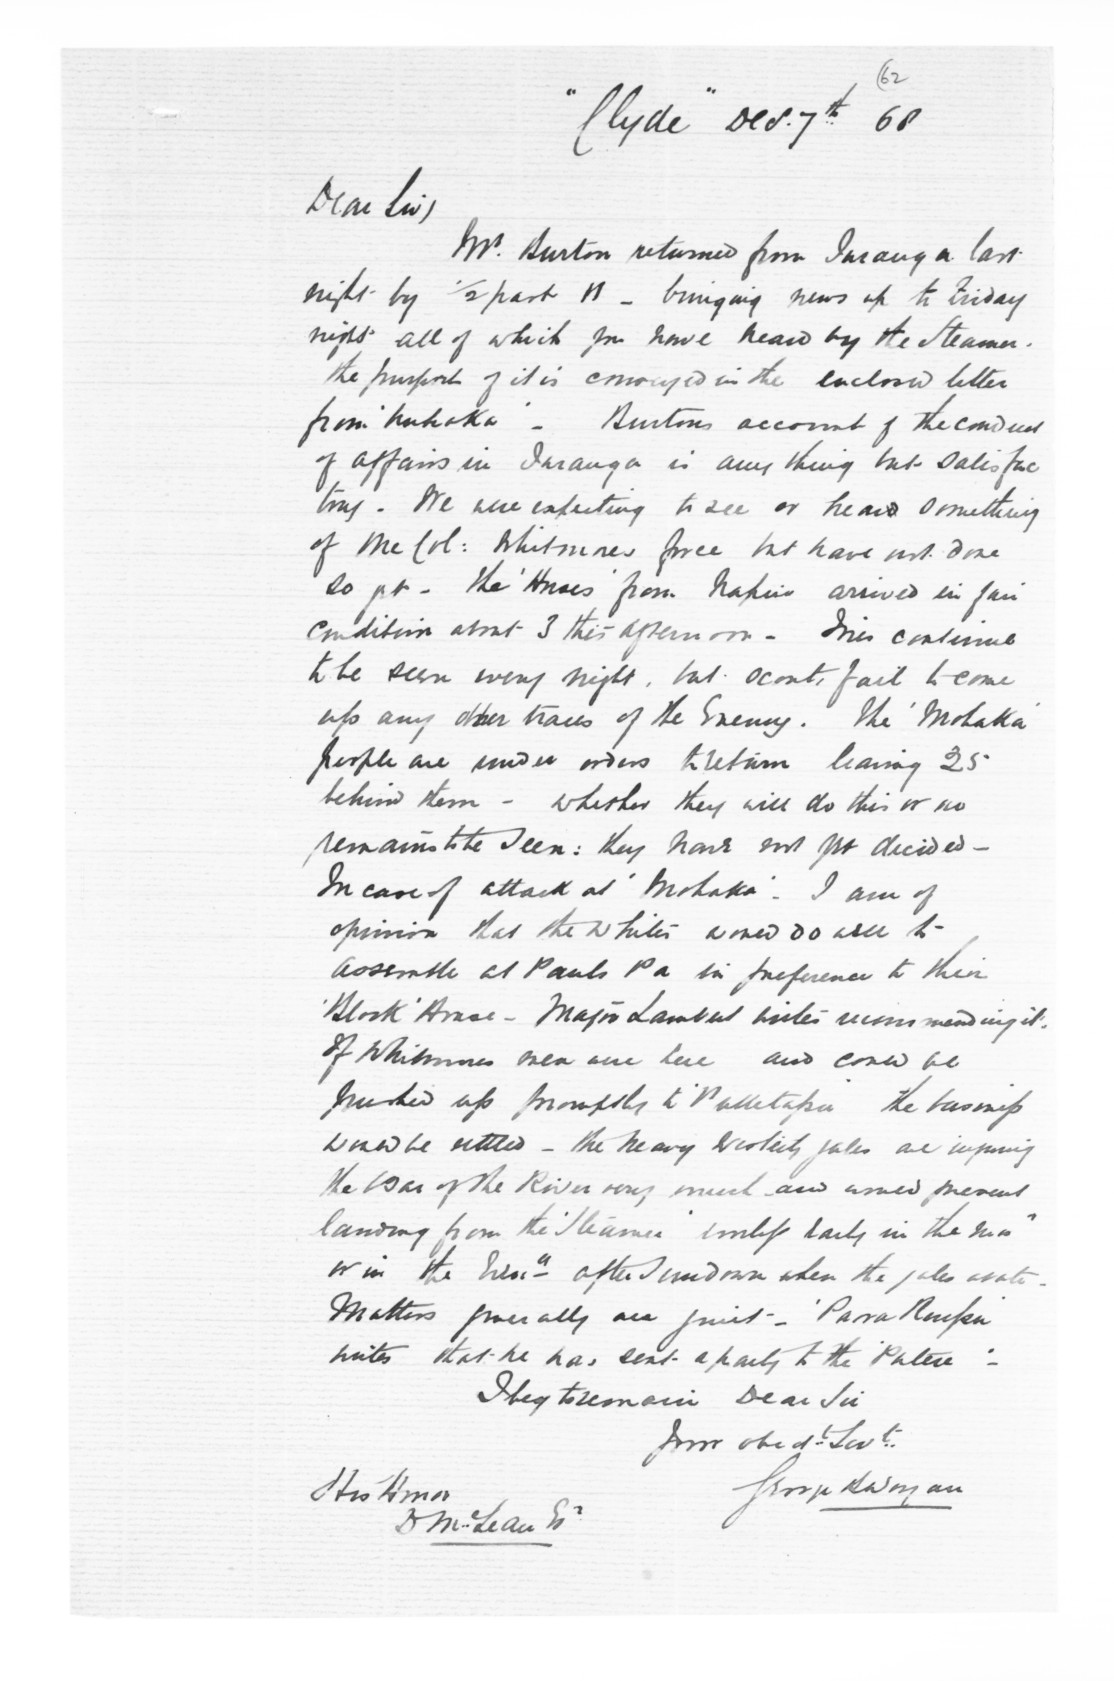 (62
"Clyde" Dec. 7th 68
Dear Sir,
Mr. Burton returned from Turanga last
night by ½ past 11 - bringing news up to Friday
night all of which you have heard by the Steamer.
the purport of it is conveyed in the enclosed letter
from 'Nuhaka' - Burtons account of the conduct
of affairs in Turanga is any thing but satisfac
tory. We were expecting to see or heard something
of the Col: Whitmores force but have not done
so yet - the 'Horses' from Napier arrived in fair
condition about 3 this afternoon - Fires continue
to be seen every night, but scouts fail to come
up any other traces of the Enemy. The 'Mohaka'
people are under orders to return leaving 25
behind them - whether they will do this or no
remains to be seen: they have not yet decided -
In case of attack at 'Mohaka'. I am of
opinion that the Whites would do well to
assemble at Pauls Pa in preference to their
'Block' House - Major Lambert writes recommending it.
If Whitmores men were here and could be
pushed up promptly to the business
would be settled - the heavy Westerly gales are injuring
the Bar of the River very much and would prevent
landing from the 'Steamer' unless early in the mor
or in the Even after Sundown when the gales abate -
Matters generally are quiet - 'Paora Rerepu'
writes that he has sent a party to the 'Putere' -
I beg to remain Dear Sir
Your obedt. Servt.
George
His Honor
D McLean Esq